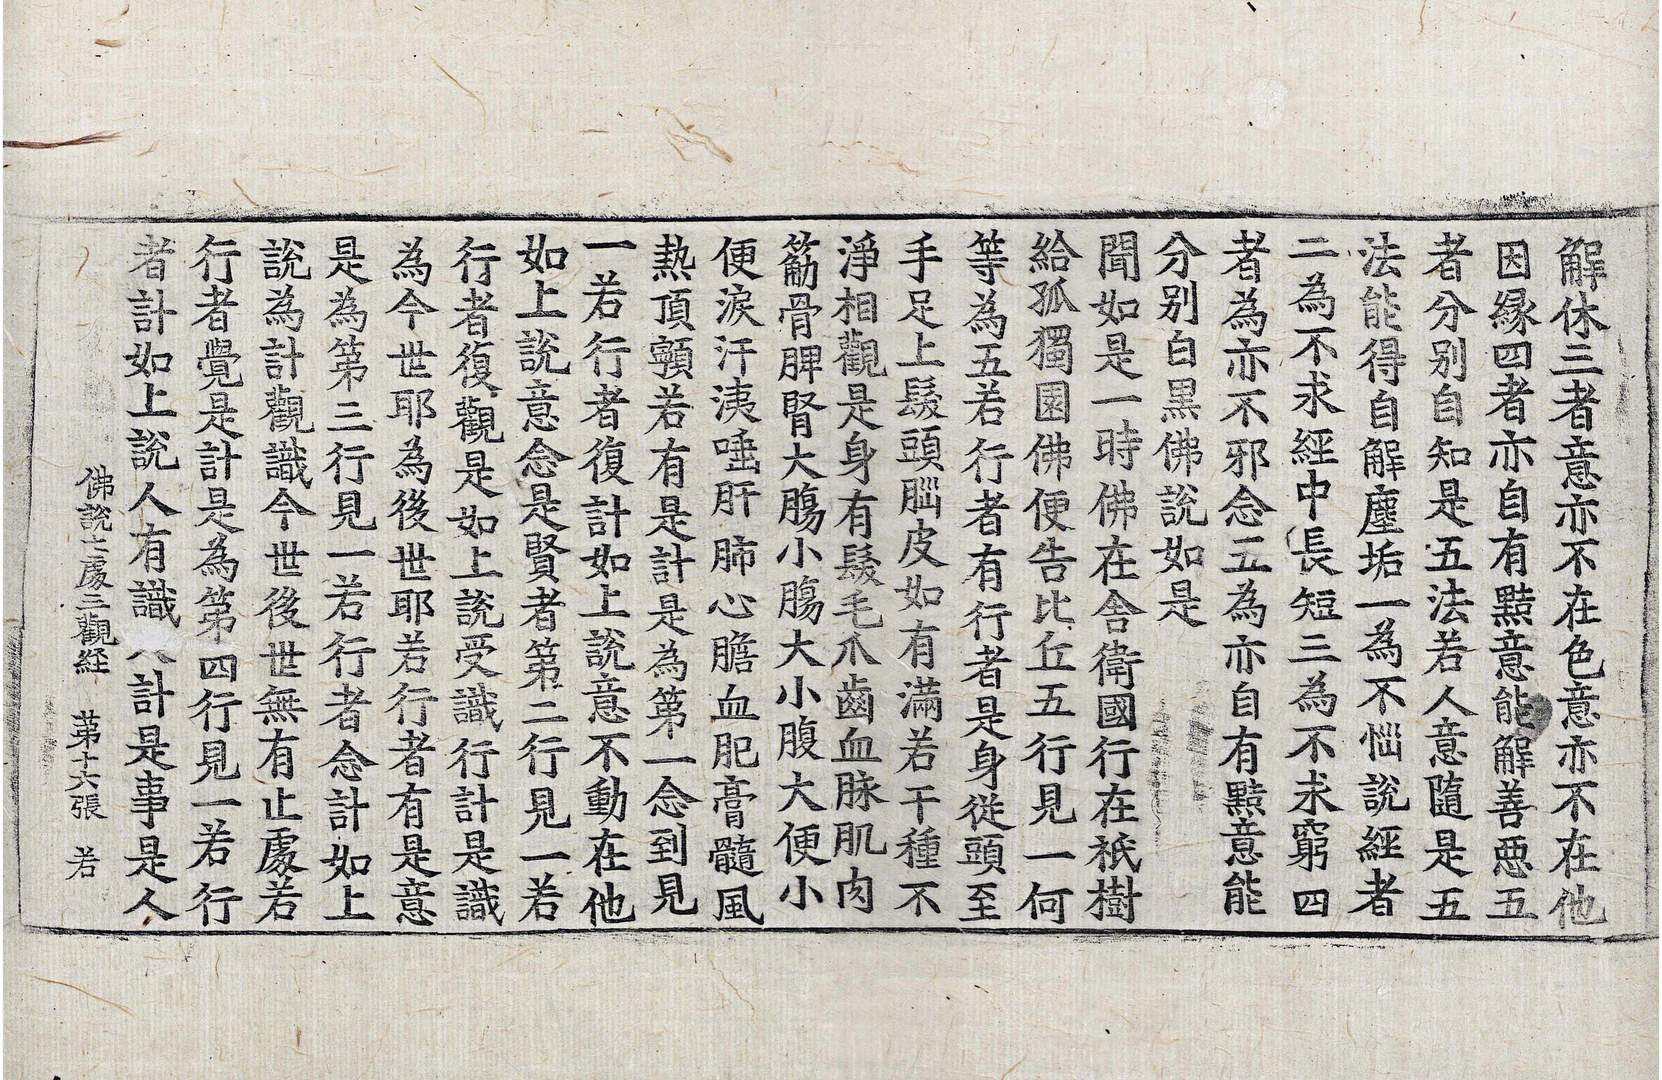 解休三者意亦不在色意亦不在他
因縁四者亦自有黠意能解善惡五
者分别自知是五法若人意隨是五
法能得自解塵垢一為不惱說經者
二為不求經中長短三為不求窮四
者為亦不邪念五為亦自有黠意能
分别白黒佛說如是
聞如是一時佛在舍衛國行在祇樹
給孤獨園佛便告比丘五行見一何
等為五若行者有行者是身從頭至
手足上髮頭腦皮如有滿若干種不
淨相觀是身有髮毛爪齒血脉肌肉
筋骨脾腎大膓小膓大小腹大便小
便淚汗洟唾肝肺心膽血肥膏髓風
熱頂顊若有是計是為第一念到見
一若行者復計如上說意不動在他
如上說意念是賢者第二行見一若
行者復觀是如上說受識行計是識
為今世耶為後世耶若行者有是意
是為第三行見一若行者念計如上
說為計觀識今世後世無有止處若
行者覺是計是為第四行見一若行
者計如上說人有識計是事是人
佛說七處三觀経 苐十六張 若